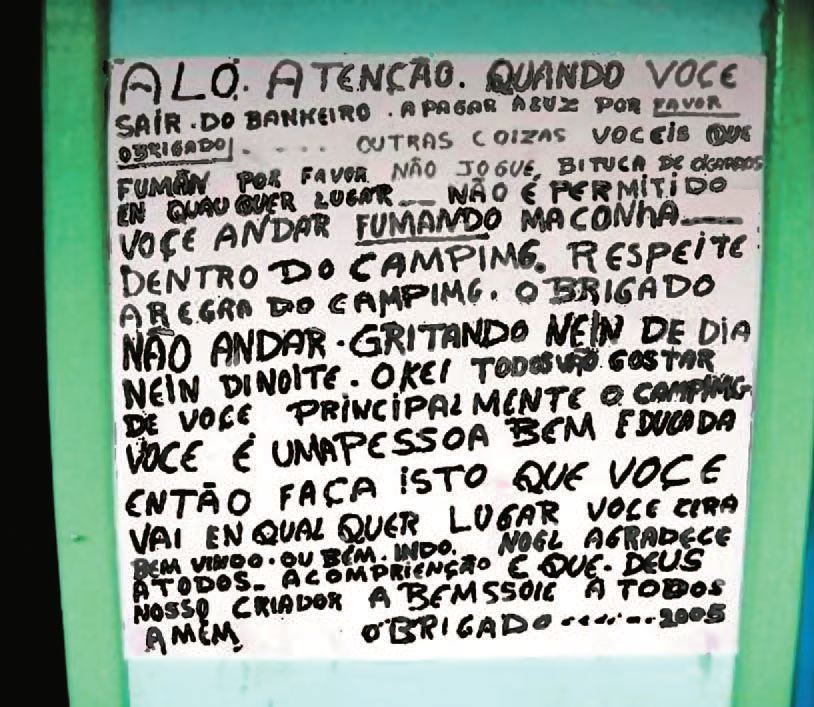 ALO. ATENÇÃO. QUANDO VOCE
SAIR.DO BANHEIRO. APAGAR ALUZ POR FAVOR
OBRIGADO. .... OUTRAS COIZAS VOCEIS QUE
FUMÃN POR FAVOR NÃO JOGUE, BITUCA DE CIGARROS
EN QUAUQUER LUGAR__ NÃO É PERMITIDO
VOÇE ANDAR FUMANDO MACONHA___
DENTRO DO CAMPIMG. RESPEITE
AREGRA DO CAMPIMG. OBRIGADO
NÃO ANDAR.GRITANDO NEIN DE DIA
NEIN DINOITE.OKEI TODOS VÃO GOSTAR
DE VOÇE PRINCIPALMENTE O CAMPIMG
VOCE É UMAPESSOA BEM EDUCADA
ENTÃO FAÇA ISTO QUE VOÇE
VAI EN QUAL QUER LUGAR VOCE CERA
BEM VINDO.OU BEM.INDO. NOEL AGRADECE
ATODOS_ ACOMPRIENÇÃO E QUE.DEUS
NOSSO CRIADOR ABEMSSOIE A TODOS
AMÉM, OBRIGADO ........2005